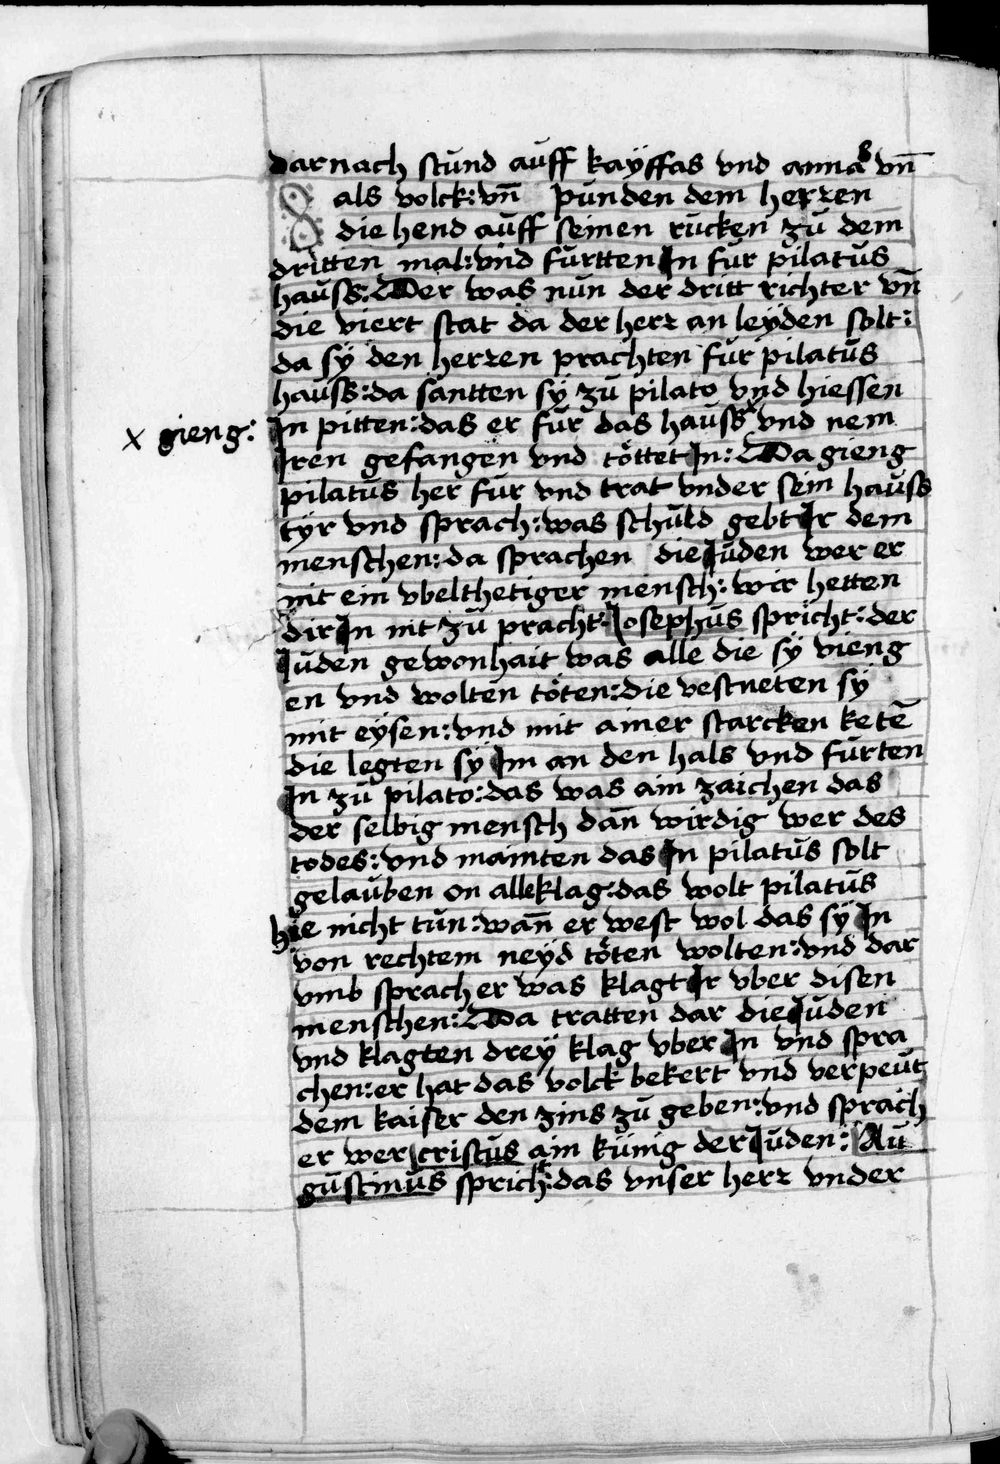 darnach stund auff kaÿffas vnd annas vn̄
als volck: vn̄ punden dem herren
die hend auff seinen rucken zu dem
dritten mal: vnd furtten In fur pilatus
hauss: Der was nun der dritt richter vn̄
die viert stat da der herr an leÿden solt:
da sÿ den herren prachten fur pilatus
hauss: da santten sÿ zu pilato vnd hiessen
In pitten: das er fur das hauss x vnd nem
x gieng:
Iren gefangen vnd töttet In: Da gieng
pilatus her fur vnd trat vnder sein hauss
tÿr vnd sprach: was schuld gebt Ir dem
menschen: da sprachen die Iuden wer er
nit ein vbelthetiger mensch: wir hetten
dir In nit zu pracht: Iosephus spricht: der
Iuden gewonhait was alle die sÿ vieng
en vnd wolten töten: die vestneten sÿ
mit eÿsen: vnd mit ainer starcken ketē
die legten sÿ Im an den hals vnd furten
In zu pilato: das was ain zaichen das
der selbig mensch dan̄ wirdig wer des
todes: vnd mainten das In pilatus solt
gelauben on alle klag: das wolt pilatus
hie nicht tun: wan̄ er west wol das sÿ In
von rechtem neÿd töten wolten: vnd dar
vmb sprach er was klagt Ir vber disen
menschen: Da tratten dar die Iuden
vnd klagten dreÿ klag vber In vnd spra
chen: er hat das volck bekert vnd verpeut
dem kaiser den zins zu geben: vnd sprach
er wer cristus ain künig der Iuden: Au
gustinus spricht: das vnser herr vnder